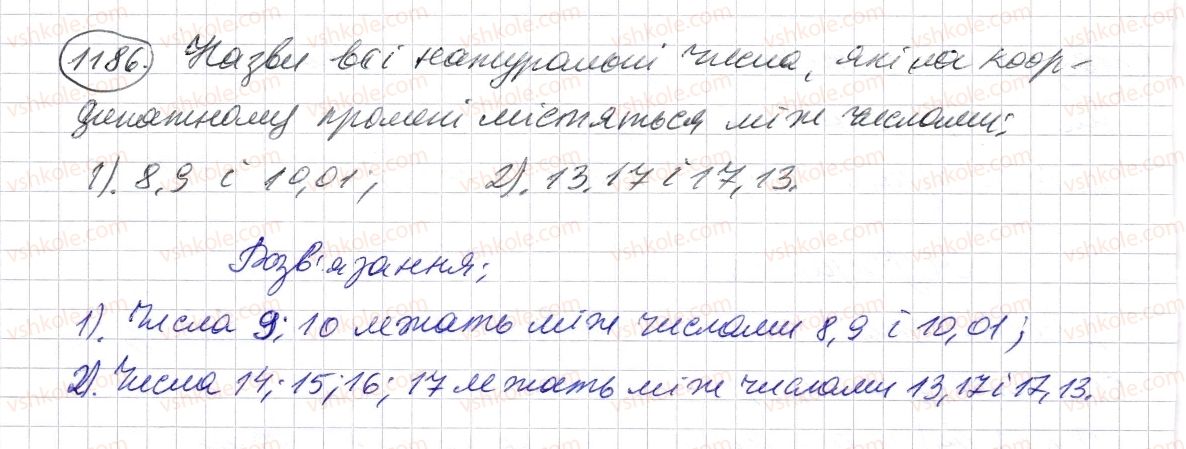 1186. Назви всі натуральні числа, які на коор-
динатному промені містяться між числами:
1). 8,9 і 10,01; 2). 13,17 і 17,13.
Розв'язання:
1). Числа 9; 10 лежать між числами 8,9 і 10,01;
2). Числа 14; 15; 16; 17 лежать між числами 13,17 і 17,13.